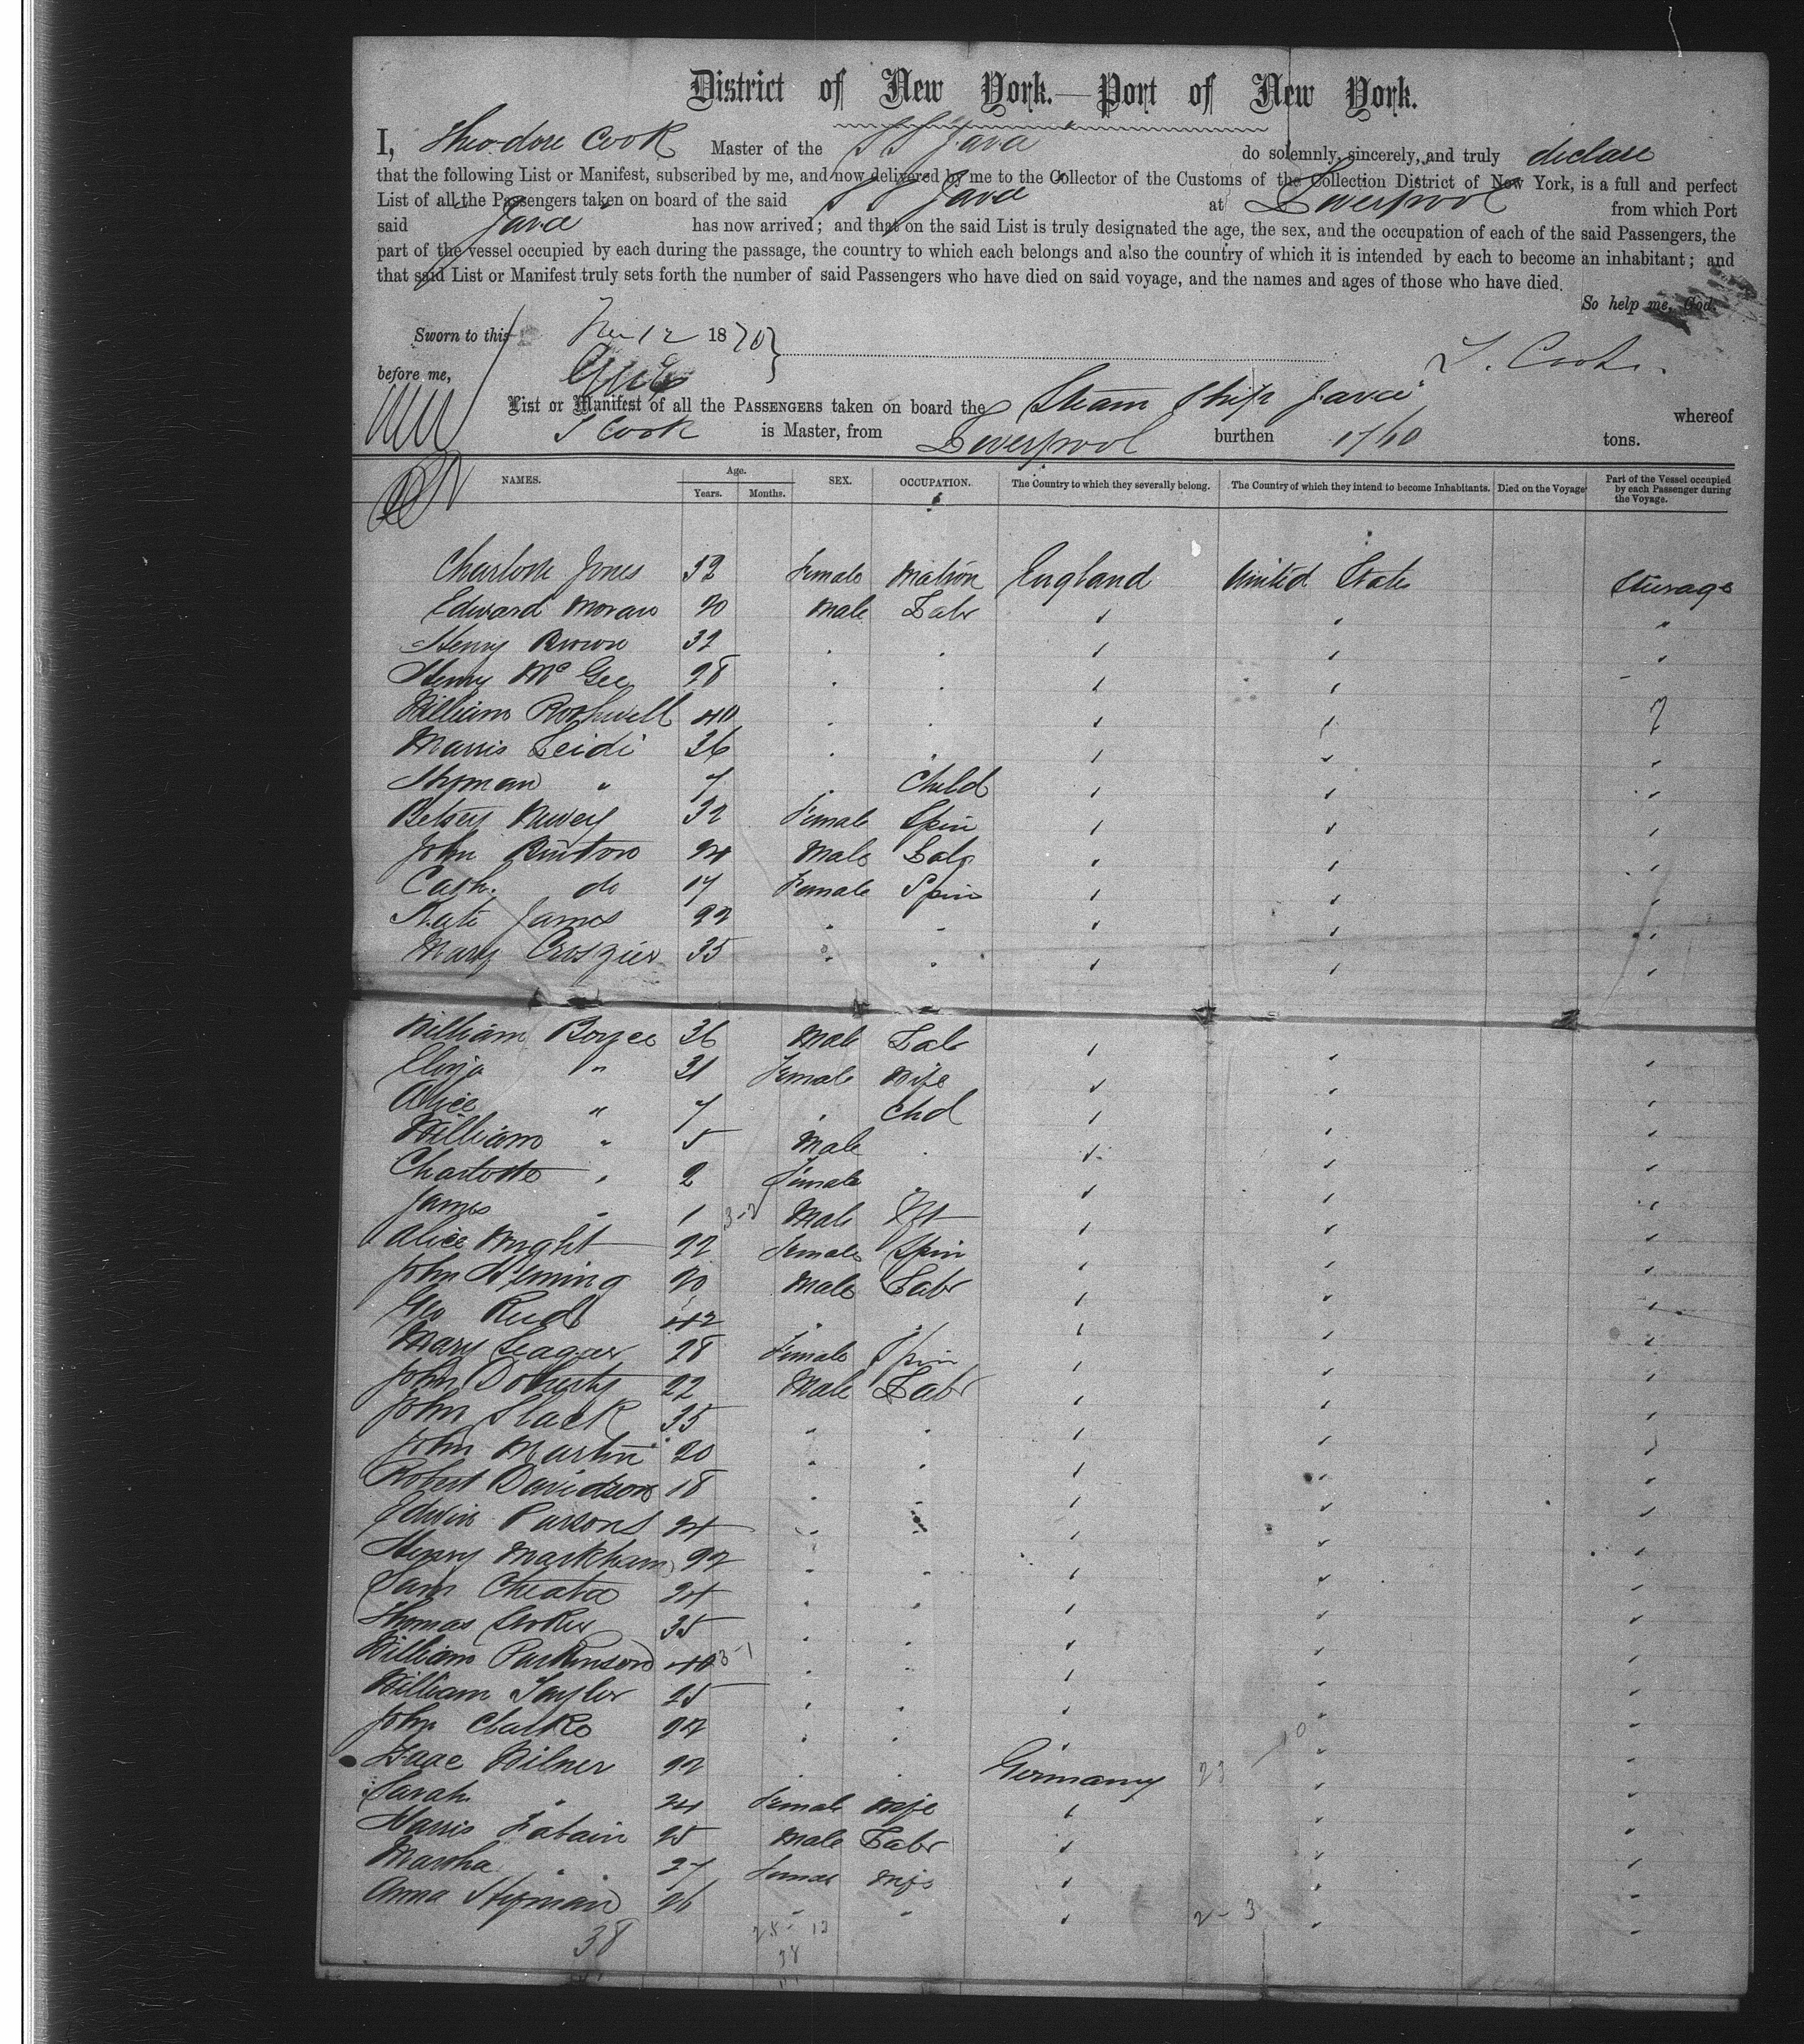 District of New York.—Port of New York.
I, Theodore Cook Master of the SS Java do solemnly, sincerely, and truly declare
that the following List or Manifest, subscribed by me, and now delivered by me to the Collector of the Customs of the Collection District of New York, is a full and perfect
List of all the Passengers taken on board of the said SS Java at Liverpool from which Port
said Java has now arrived; and that on the said List is truly designated the age, the sex, and the occupation of each of the said Passengers, the
part of the vessel occupied by each during the passage, the country to which each belongs and also the country of which it is intended by each to become an inhabitant; and
that said List or Manifest truly sets forth the number of said Passengers who have died on said voyage, and the names and ages of those who have died.
So help me, God.
Sworn to this 12 1870 }
T. Cook.
before me,
List or Manifest of all the PASSENGERS taken on board the Steam Ship Java whereof
T Cook is Master, from Liverpool burthen 1760 tons.
NAMES. Age. Years. Months. SEX. OCCUPATION. The Country to which they severally belong. The Country of which they intend to become Inhabitants. Died on the Voyage Part of the Vessel occupied by each Passenger during the Voyage.
Charlotte Jones 32 Female Matron England United States Steerage
Edward Moran 20 Male Labr " " "
Henry Brown 32 " " " " "
Henry McGee 28 " " " " "
William Rothwell 40 " " " "
Morris Leidi 36 " " " " "
Hyman " 7 " Child " " "
Betsey 32 Female Spin " " "
John Rinton 24 Male Labr " " "
Cath. do 17 Female Spin " " "
Kate James 22 " " " " "
Mary Croszier 35 " " " " "
William Boyce 36 Male Lab " " "
Eliza " 31 Female Wife " " "
Alice " 7 " Chd " " "
William " 5 Male " " " "
Charlotte " 2 Female " " " "
James " 1 3-2 Male Inft " " "
Alice Wright 22 Female Spin " " "
John Fleming 20 Male Labr " " "
Geo Reed 42 " " " " "
Mary Seager 28 Female Spin " " "
John Doherty 22 Male Labr " " "
John Slack 35 " " " " "
John Martin 20 " " " " "
Robert Davidson 18 " " " " "
Edwin Parsons 24 " " " " "
Henry Markham 22 " " " " "
Sam 24 " " " " "
Thomas 35 " " " " "
William Parkinson 40 3-1 " " " " "
William Taylor 25 " " " " "
John Clarke 24 " " " " "
Isaac Bilner 22 " " Germany 23 10 " "
Sarah " 24 Female Wife " " "
Harris 25 Male Labr " " "
Martha " 27 Female Wife " " "
Anna Hyman 26 " " " 2-3 " "
38 25-13
38